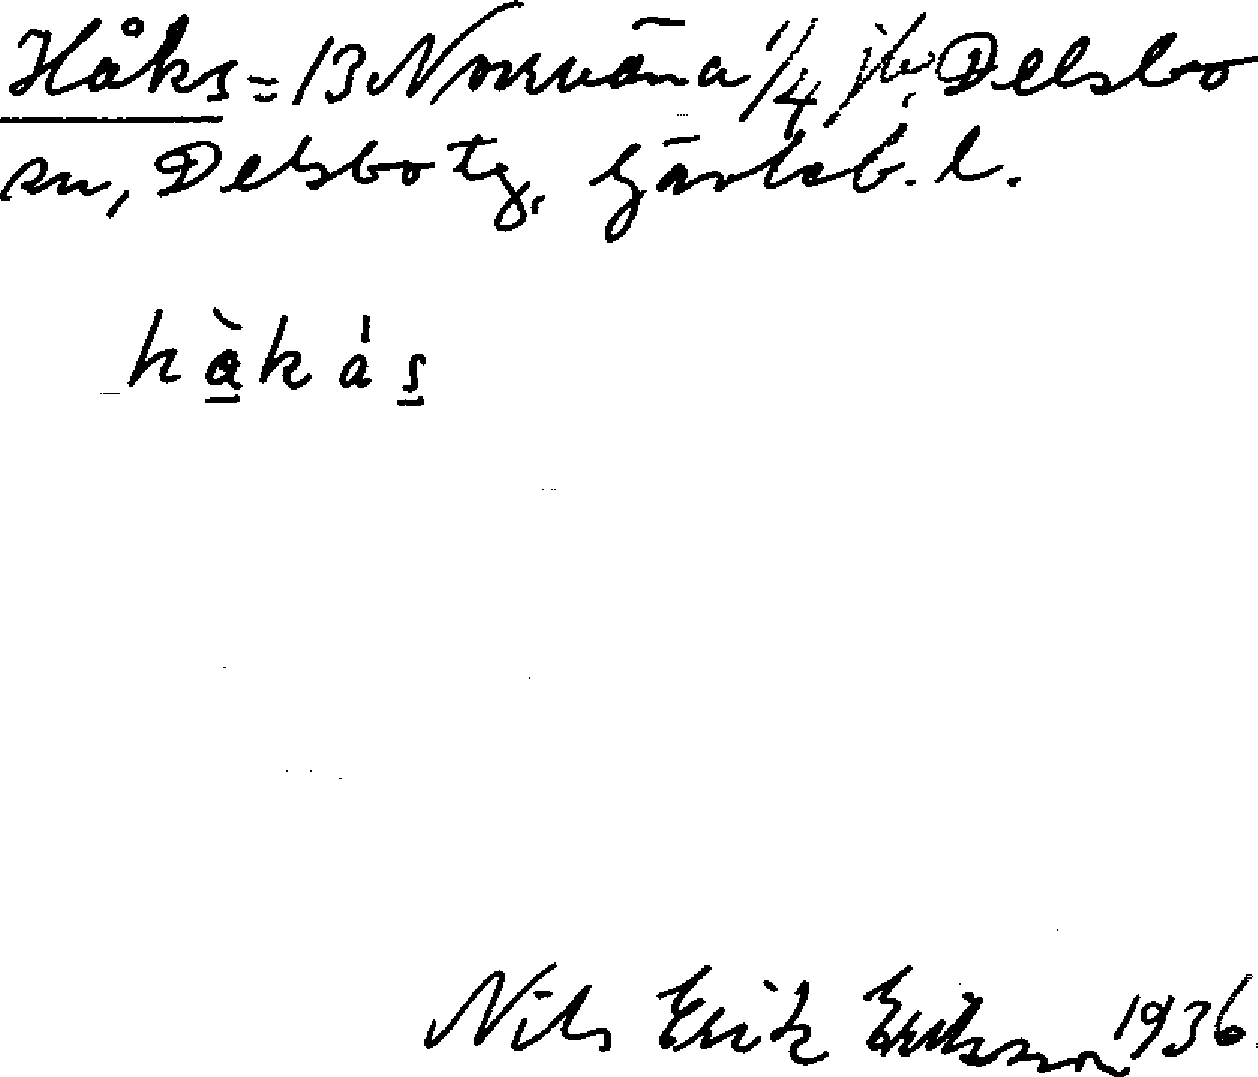 Håks = 13 Norrväna 1/4 jb, Delsbo
sn, Delsbo tg. Gävleb. l.
hàkás
Nils Erik Eriksson 1936